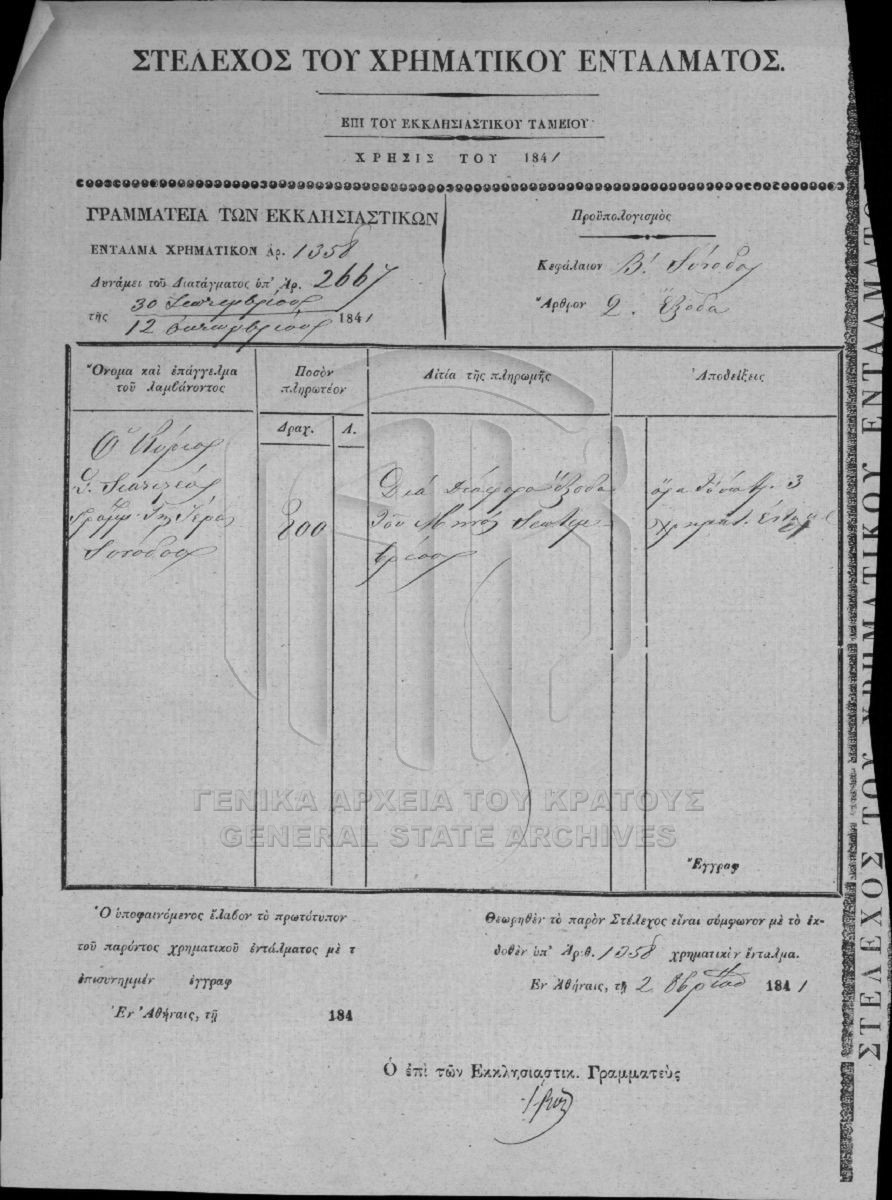 ΣΤΕΛΕΧΟΣ ΤΟΥ ΧΡΗΜΑΤΙΚΟΥ ΕΝΤΑΛΜΑΤΟΣ.
ΕΠΙ ΤΟΥ ΕΚΚΛΗΣΙΑΣΤΙΚΟΥ ΤΑΜΕΙΟΥ
ΧΡΗΣΙΣ ΤΟΥ 1841
ΓΡΑΜΜΑΤΕΙΑ ΤΩΝ ΕΚΚΛΗΣΙΑΣΤΙΚΩΝ
ΕΝΤΑΛΜΑ ΧΡΗΜΑΤΙΚΟΝ Ἀρ. 1358
Δυνάμει τοῦ Διατάγματος ὑπ' Ἀρ. 2667
τῆς 30 Σεπτεμβρίου
12 Οκτωμβρίου 1841
Προϋπολογισμὸς
Κεφάλαιον Β! Σύνοδος
Ἄρθρον 2. Ἔξοδα
Ὄνομα καὶ ἐπάγγελμα
τοῦ λαμβάνοντος
Ποσὸν
πληρωτέον
Αἰτία τῆς πληρωμῆς
Ἀποδείξεις
Δραχ. Λ.
Ὁ Κύριος
Γραμμ. της Ἱερᾶς
Συνόδου
200
Διά διάφορα ἔξοδα
τοῦ Μηνός Σεπτεμ
βρίου
3
χρηματ.
Ἔγγραφ
Ὁ ὑποφαινόμενος ἔλαβον τὸ πρωτότυπον
τοῦ παρόντος χρηματικοῦ ἐντάλματος μὲ τ
ἐπισυνημμέν ἐγγραφ
Ἐν Ἀθήναις, τῇ 184
Θεωρηθὲν τὸ παρὸν Στέλεχος εἶναι σύμφωνον μὲ τὸ ἐκ-
δοθὲν ὑπ' Ἀριθ. 1358 χρηματικὸν ἔνταλμα.
Ἐν Ἀθήναις, τῇ 2 8βρίου 1841
Ὁ ἐπὶ τῶν Εκκλησιαστικ. Γραμματεὺς
ΓΕΝΙΚΑ ΑΡΧΕΙΑ ΤΟΥ ΚΡΑΤΟΥΣ
GENERAL STATE ARCHIVES
ΣΤΕΛΕΧΟΣ ΤΟΥ ΧΡΗΜΑΤΙΚΟΥ ΕΝΤΑΛΜΑΤΟΣ